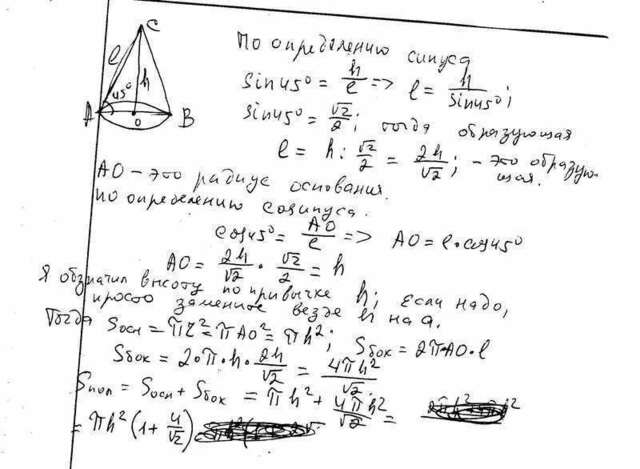 C
l
h
45°
A
O
B
По определению синуса
sin45° = h/l => l = h/sin45°;
sin45° = √2/2; тогда образующая
l = h : √2/2 = 2h/√2; - это образующая.
AO - это радиус основания.
по определению косинуса.
cos45° = AO/l => AO = l·cos45°
AO = 2h/√2 · √2/2 = h
Я обзначил высоту по привычке h; если надо,
просто замените везде h на a.
Тогда Sосн = πr² = πAO² = πh²; Sбок = 2πAO·l
Sбок = 2·π·h·2h/√2 = 4πh²/√2.
Sпол = Sосн + Sбок = πh² + 4πh²/√2 =
= πh²(1 + 4/√2)